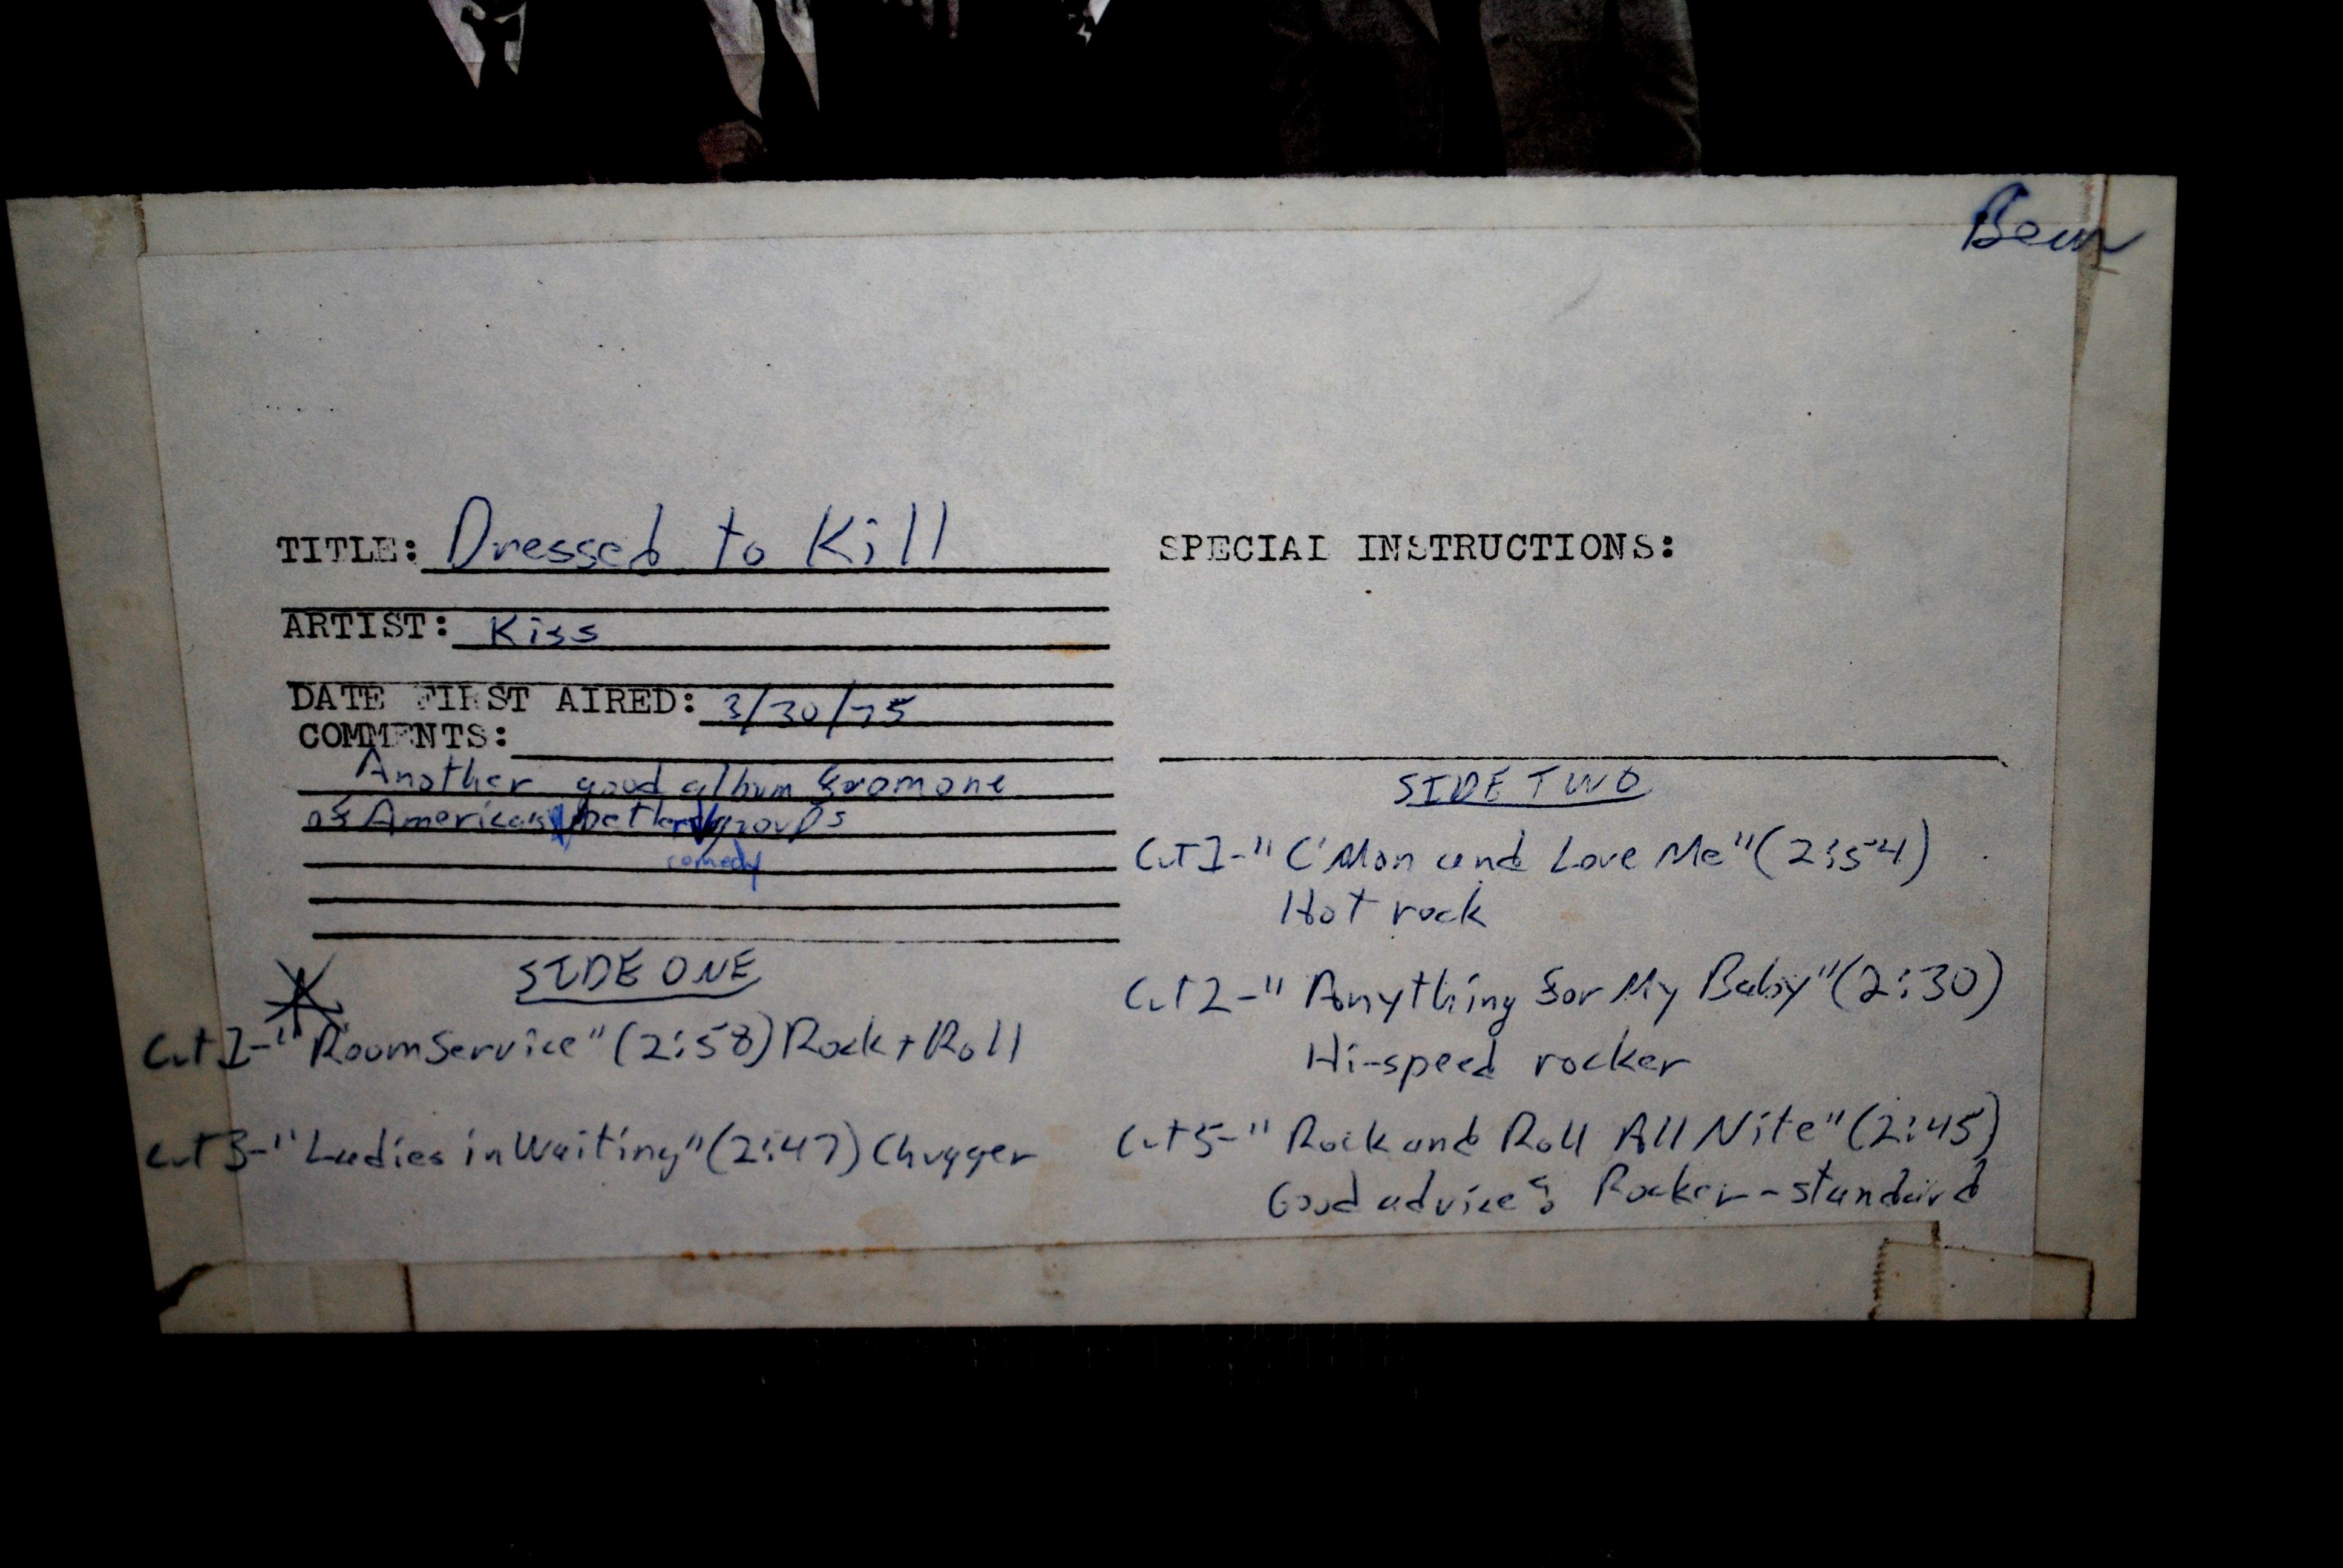 TITLE: Dressed to Kill
ARTIST: Kiss
DATE FIRST AIRED: 3/30/75
COMMENTS:
Another good album from one
of America's better groups
comedy
SPECIAL INSTRUCTIONS:
SIDE ONE
Cut 1-"Room Service" (2:58) Rock + Roll
Cut 3-"Ladies in Waiting" (2:47) Chugger
SIDE TWO
Cut 1-"C'Mon and Love Me" (2:54)
Hot rock
Cut 2-"Anything for My Baby" (2:30)
Hi-speed rocker
Cut 5-"Rock and Roll All Nite" (2:45)
Good advice; Rocker-standard